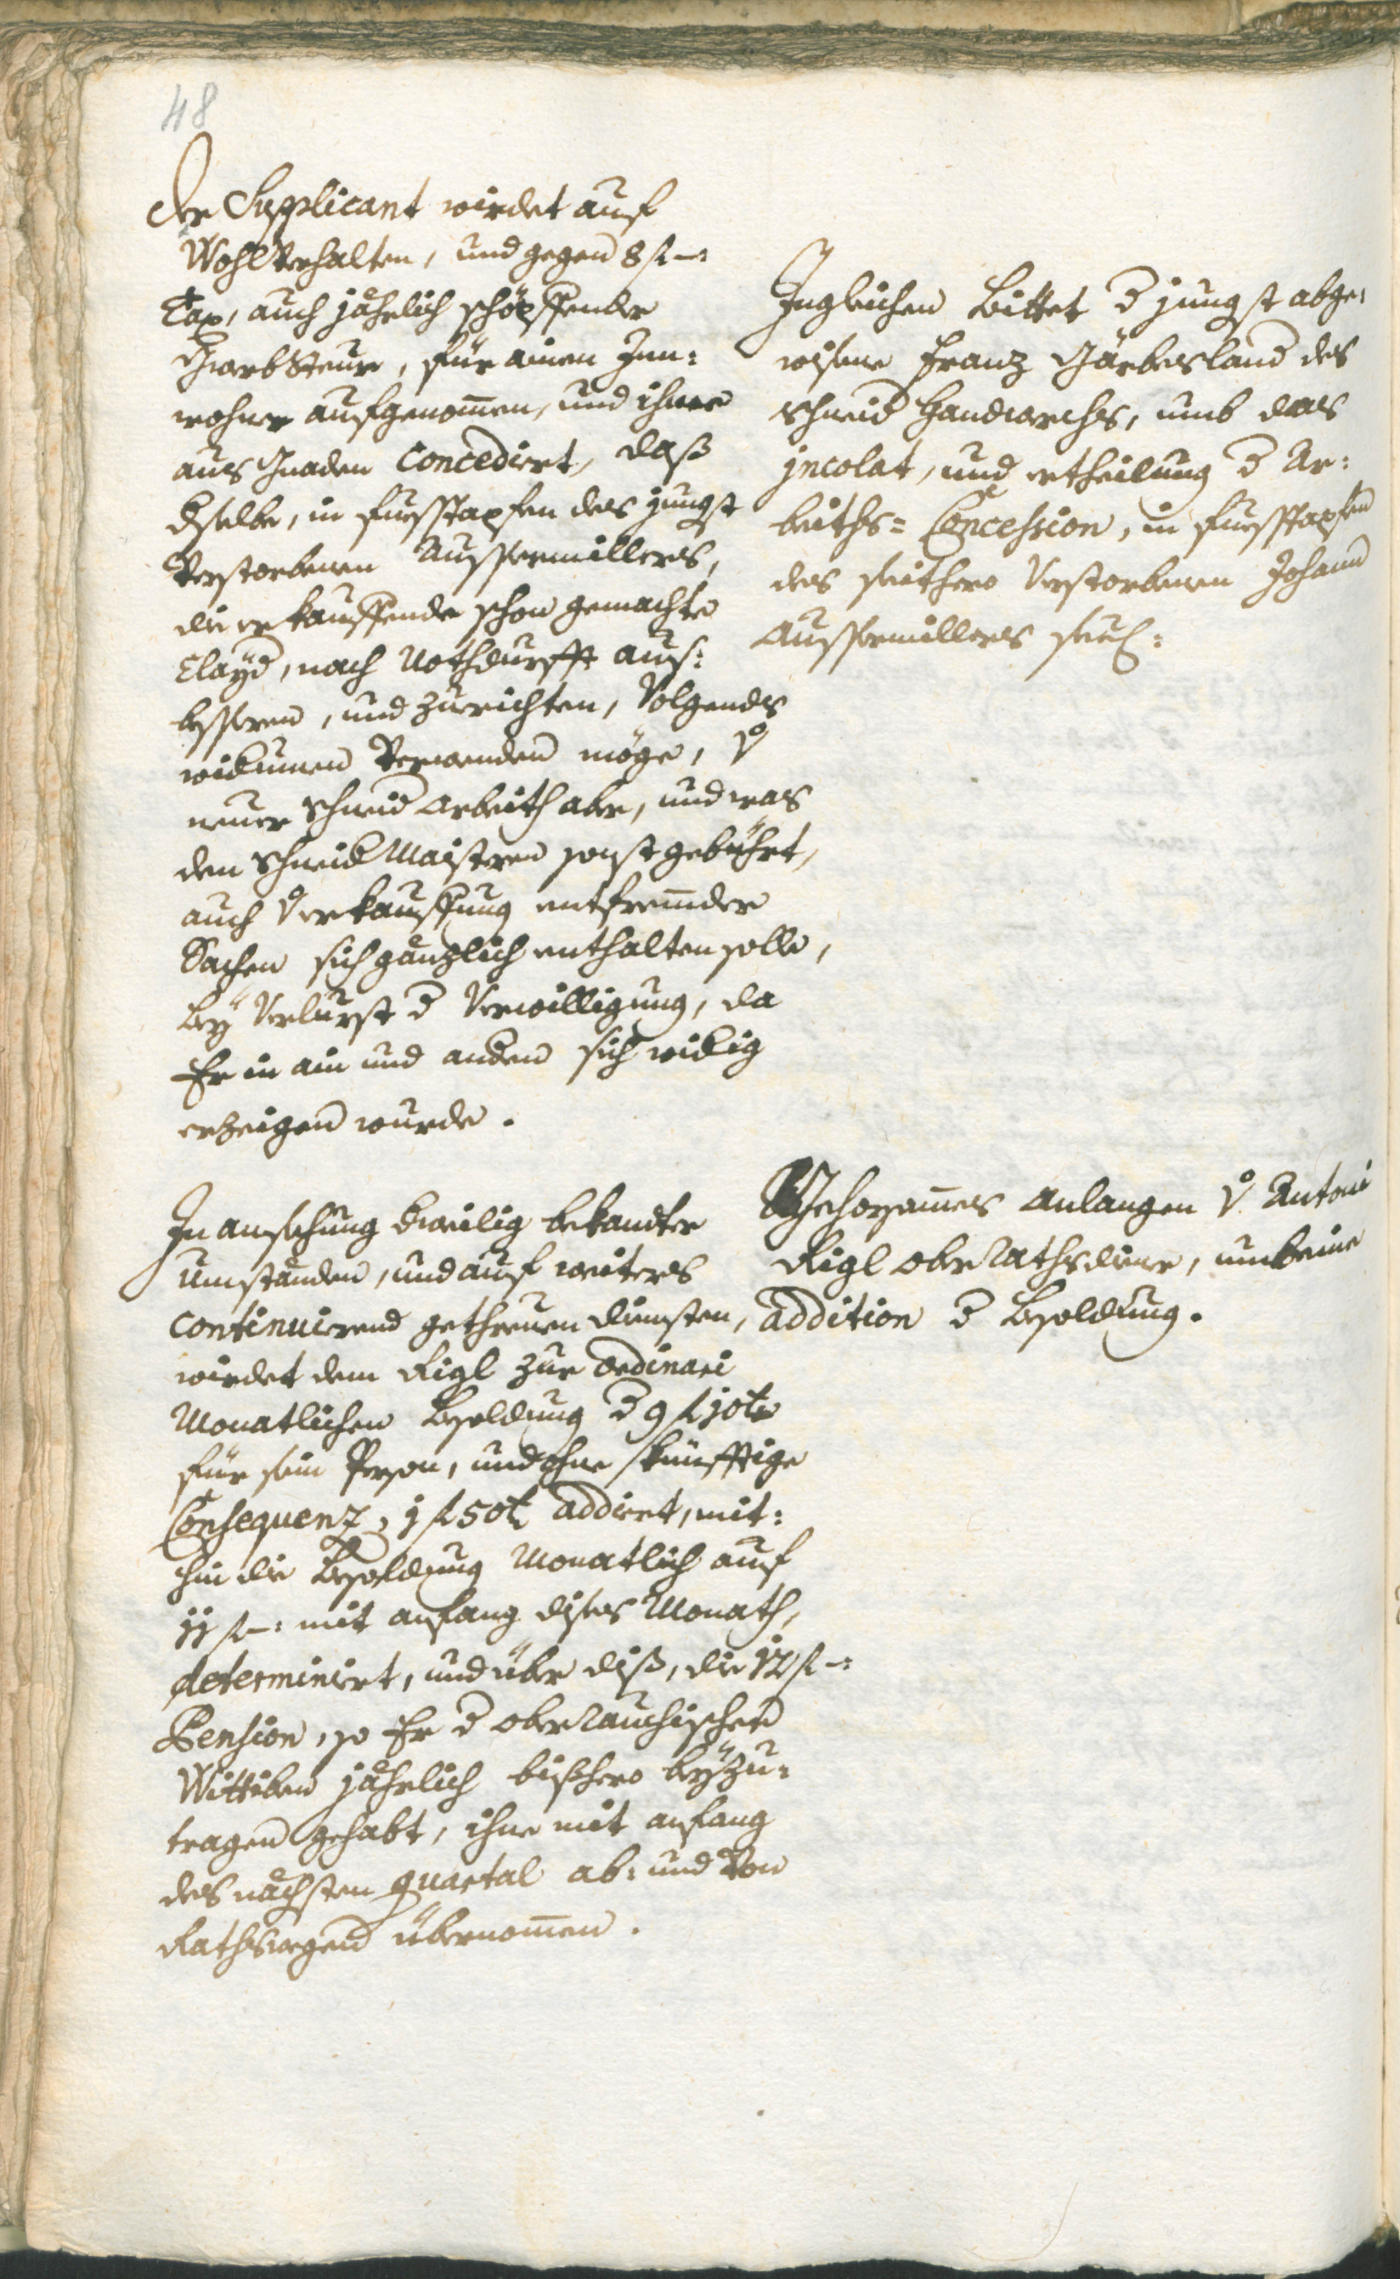 48
Der Supplicant wirdet auf
Wohlverhalten, und gegen 8 f –:
Tax, auch jährlich schöpffender
GwerbSteur, für ainen Inn:
wohner aufgenom̄en, und ihme
aus Gnaden Concediert, daß
dselbe, in fuesstapfen des jungst
Verstorbenen Aussermillers,
die er kauffende schon gemachte
Clayd, nach Nothdurfft aus:
bessern, und Zuerichten, Volgends
widumen Verwenden möge, v̊
neuer Schneid arbeith aber, und was
den Schneid Maistern sonst gebührt,
auch Verkauffung entfremder
Sachen sich gänzlich enthalten solle,
bey Verlurst d Verwilligung, da
Er in ain und andern sich widrig
erzeigen wurde.
Ingleichen Bittet d jungst abge:
wisene Franz Gärbesland des
Schneid Handwerchs, umb das
jncolat, und ertheilung d Ar:
beiths= Concession, in fuesstapfen
des seithero Verstorbenen Johann
Aussermillers seel:
In ansehung dermeilig bekandter
Umständen, und auf weiters
continuirend getreuen diensten,
wirdet dem Rigl zur ordinari
Monatlichen Besoldung d 9 f 10 k
für sein Person, und ohne künfftige
Consequenz, 1 f 50 k addiert, mit:
hin die Besoldung Monatlich auf
11 f –: mit anfang dises Monath,
determiniert, und über diß, die 12 f –:
Pension, so Er d oberrauchischen
Wittiben jährlich bißhero beyzu:
tragen gehabt, ihne mit anfang
des nächsten quartal ab: und Von
Rathswegen übernom̄en.
Gehorsames Anlangen v̊ Antoni
Rigl ober Rathsdiener, umb eine
addition d Besoldung.